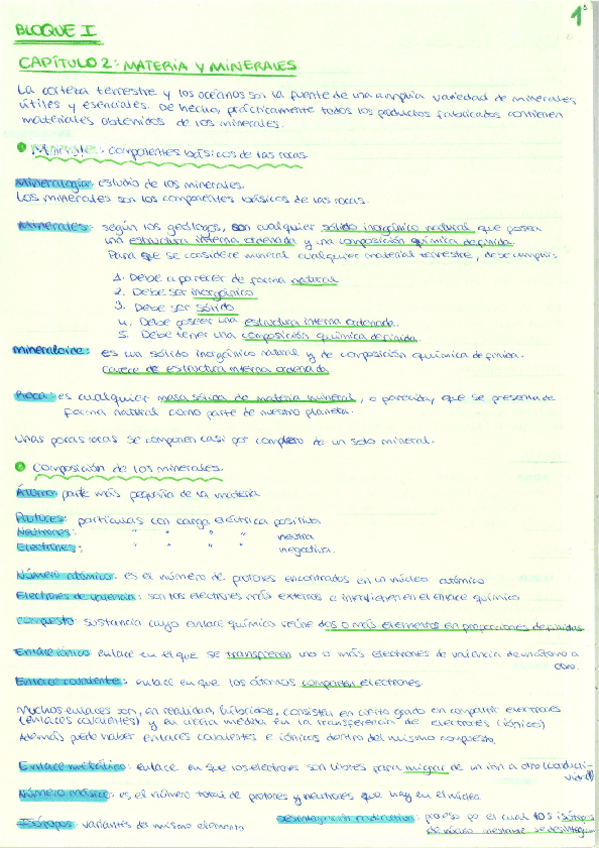 1
BLOQUE I
CAPÍTULO 2: MATERIA Y MINERALES
La corteza terrestre y los océanos son la fuente de una amplia variedad de minerales
útiles y esenciales. De hecho, prácticamente todos los productos fabricados contienen
materiales obtenidos de los minerales.
componentes básicos de las rocas
Mineralogía: estudio de los minerales.
Los minerales son los componentes básicos de las rocas.
Minerales: según los geólogos, son cualquier sólido inorgánico natural que posea
una estructura interna ordenada y una composición química definida.
Para que se considere mineral cualquier material terrestre, debe cumplir:
1. Debe aparecer de forma natural
2. Debe ser inorgánico
3. Debe ser sólido
4. Debe poseer una estructura interna ordenada.
5. Debe tener una composición química definida
mineraloide: es un sólido inorgánico natural y de composición química definida.
Carece de estructura interna ordenada
Roca: es cualquier masa sólida de materia mineral, o parecida, que se presenta de
forma natural como parte de nuestro planeta.
Unas pocas rocas se componen casi por completo de un solo mineral.
Composición de los minerales.
Átomo: parte más pequeña de la materia
Protones: partículas con carga eléctrica positiva
Neutrones: " " " " neutra
Electrones: " " " " negativa.
Número atómico: es el número de protones encontrados en un núcleo atómico
Electrones de valencia: son los electrones más externos e intervienen en el enlace químico
Compuesto: sustancia cuyo enlace químico reúne dos o más elementos en proporciones definidas
Enlace iónico: enlace en el que se transfieren uno o más electrones de valencia de un átomo a
otro.
Enlace covalente: enlace en que los átomos comparten electrones.
Muchos enlaces son, en realidad, híbridos, consisten en cierto grado en compartir electrones
(enlaces covalentes) y en cierta medida en la transferencia de electrones (iónicos)
Además puede haber enlaces covalentes e iónicos dentro del mismo compuesto.
Enlace metálico: enlace en que los electrones son libres para migrar de un ión a otro (conducti-
vidad)
Número másico: es el número total de protones y neutrones que hay en el núcleo.
Isótopos: variantes del mismo elemento
Desintegración radiactiva: proceso por el cual los isótopos
de núcleo inestable se desintegran